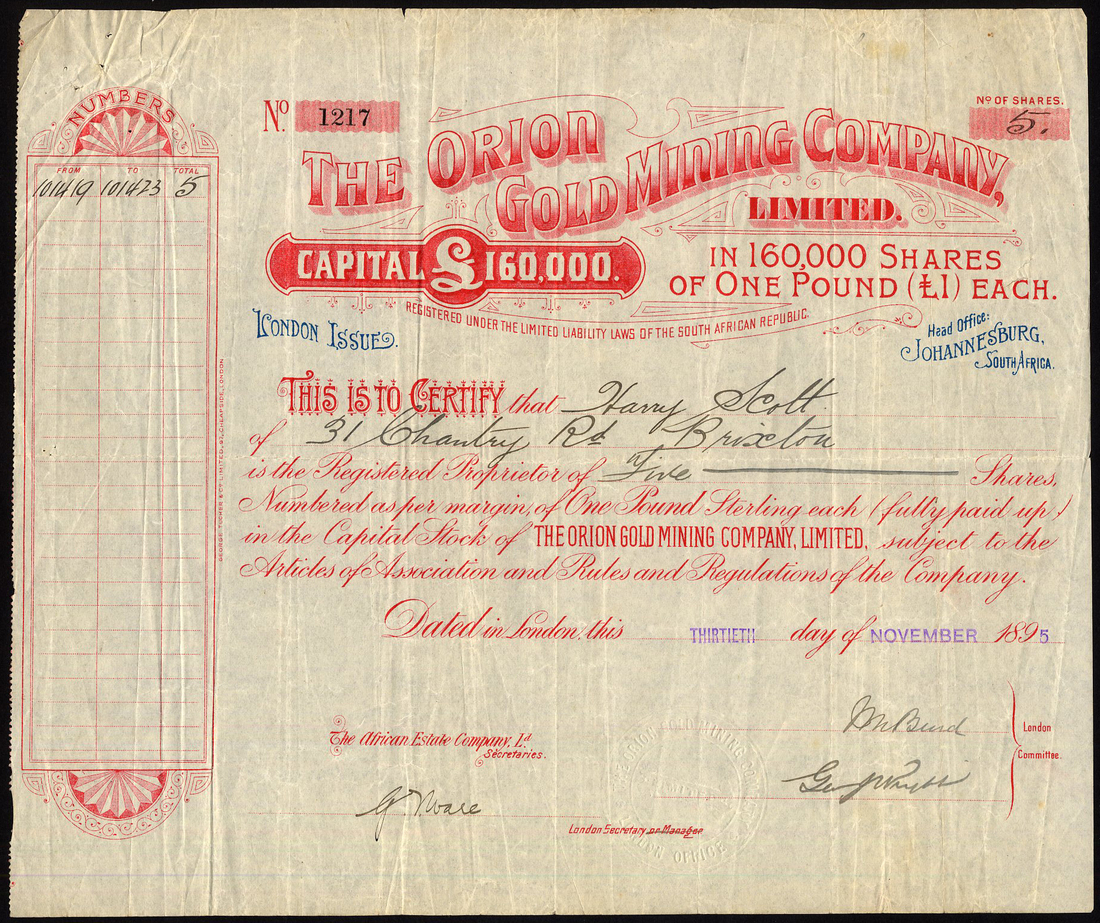 NUMBERS
FROM TO TOTAL
101419 101423 5
GEORGE TUCKER & Co. LIMITED, 97, CHEAPSIDE, LONDON
No. 1217
No OF SHARES.
5.
THE ORION GOLD MINING COMPANY,
LIMITED.
CAPITAL £160,000.
IN 160,000 SHARES
OF ONE POUND (£1) EACH.
REGISTERED UNDER THE LIMITED LIABILITY LAWS OF THE SOUTH AFRICAN REPUBLIC.
LONDON ISSUE.
Head Office:
JOHANNESBURG,
SOUTH AFRICA.
THIS IS TO CERTIFY that Harry Scott
of 31 Chantry Rd Brixton
is the Registered Proprietor of Five Shares,
Numbered as per margin, of One Pound Sterling each (fully paid up)
in the Capital Stock of THE ORION GOLD MINING COMPANY, LIMITED, subject to the
Articles of Association and Rules and Regulations of the Company.
Dated in London, this THIRTIETH day of NOVEMBER 1895
The African Estate Company, Ld.
Secretaries.
London
Committee.
London Secretary or Manager